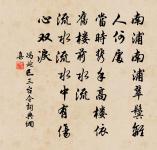 南浦南浦翠鬢離
人何處
當時攜手高樓依
舊樓前水流
流水流水中有傷
心雙淚
馮延巳三台令詞典網